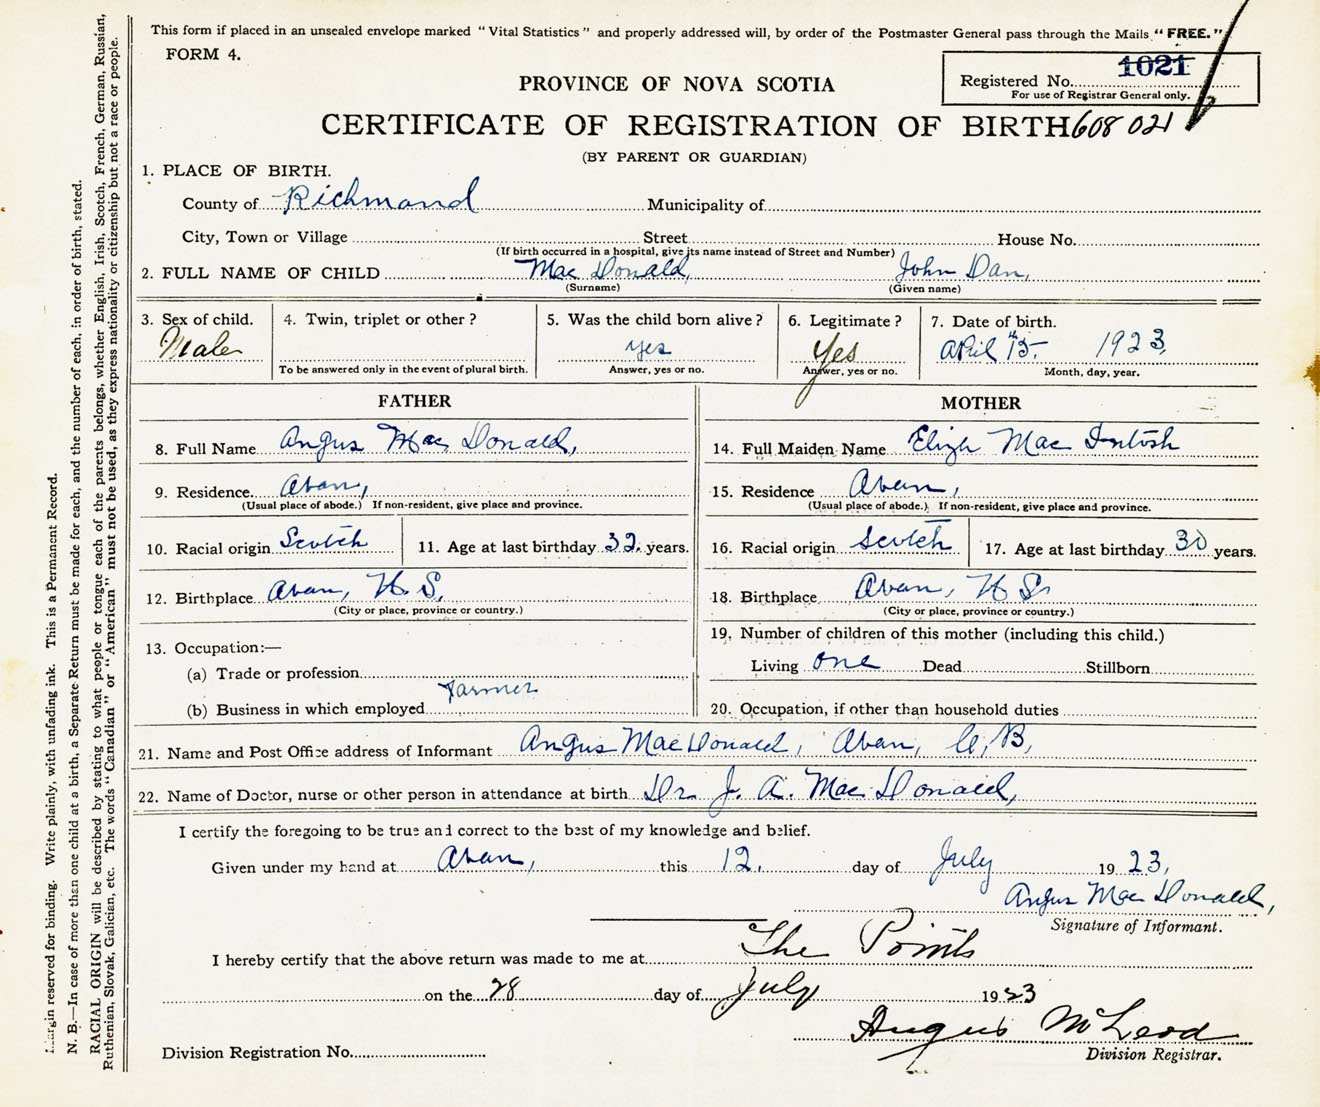 This form if placed in an unsealed envelope marked "Vital Statistics" and properly addressed will, by order of the Postmaster General pass through the Mails "FREE."
FORM 4.
Registered No. 1021
For use of Registrar General only.
PROVINCE OF NOVA SCOTIA
CERTIFICATE OF REGISTRATION OF BIRTH 608 021
(BY PARENT OR GUARDIAN)
1. PLACE OF BIRTH.
County of Richmond Municipality of
City, Town or Village Street House No.
(If birth occurred in a hospital, give its name instead of Street and Number)
2. FULL NAME OF CHILD Mac Donald, John Dan,
(Surname) (Given name)
3. Sex of child. 4. Twin, triplet or other? 5. Was the child born alive? 6. Legitimate? 7. Date of birth.
Male yes Yes April 15th 1923,
To be answered only in the event of plural birth. Answer, yes or no. Answer, yes or no. Month, day, year.
FATHER MOTHER
8. Full Name Angus Mac Donald, 14. Full Maiden Name Mac Intosh
9. Residence. 15. Residence
(Usual place of abode.) If non-resident, give place and province. (Usual place of abode.) If non-resident, give place and province.
10. Racial origin Scotch 11. Age at last birthday 32. years. 16. Racial origin Scotch 17. Age at last birthday 30 years.
12. Birthplace N. S. 18. Birthplace N S
(City or place, province or country.) (City or place, province or country.)
13. Occupation:— 19. Number of children of this mother (including this child.)
(a) Trade or profession Living one Dead Stillborn
farmer
(b) Business in which employed 20. Occupation, if other than household duties
21. Name and Post Office address of Informant Angus MacDonald, C, B,
22. Name of Doctor, nurse or other person in attendance at birth Dr J. A. Mac Donald,
I certify the foregoing to be true and correct to the best of my knowledge and belief.
Given under my hand at this 12. day of July 19 23,
Angus Mac Donald,
Signature of Informant.
I hereby certify that the above return was made to me at The Points
on the 28 day of July 19 23
Angus McLeod
Division Registrar.
Division Registration No.
Margin reserved for binding. Write plainly, with unfading ink. This is a Permanent Record.
N. B.—In case of more than one child at a birth, a Separate Return must be made for each, and the number of each, in order of birth, stated.
RACIAL ORIGIN will be described by stating to what people or tongue each of the parents belongs, whether English, Irish, Scotch, French, German, Russian,
Ruthenian, Slovak, Galician, etc. The words "Canadian" or "American" must not be used, as they express nationality or citizenship but not a race or people.